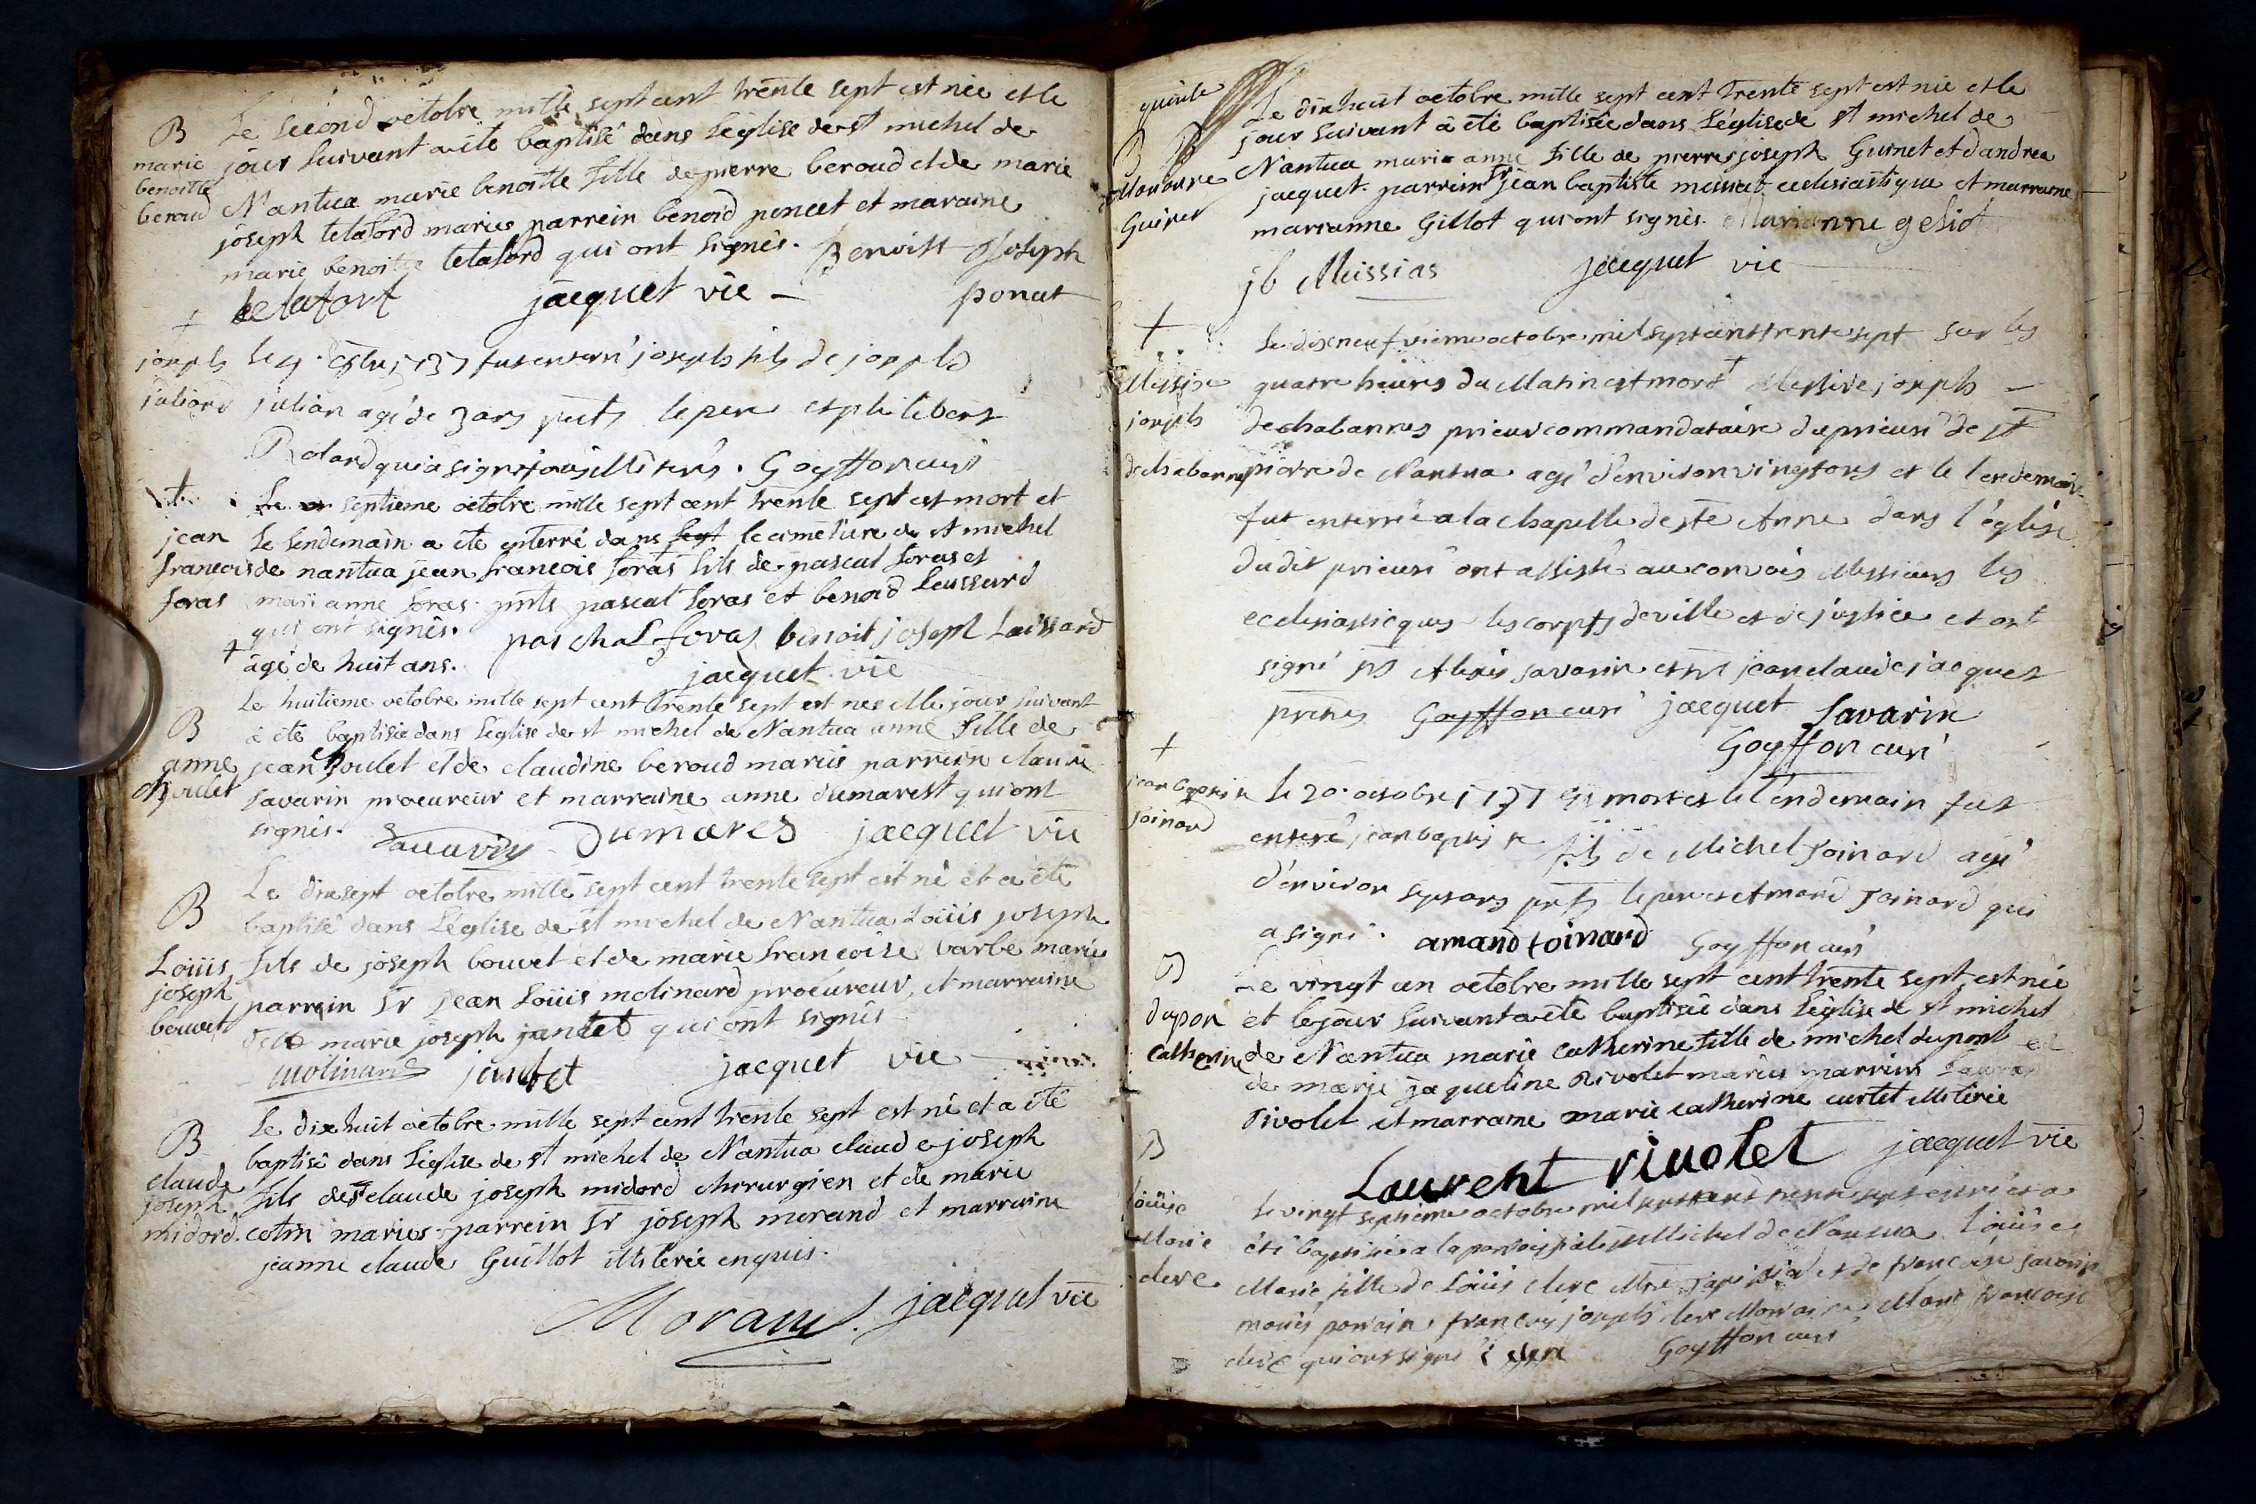 B
marie
benoitte
beroud
Le second octobre mille sept cent trente sept est née et le
jour suivant a été baptisé dans l'église de st michel de
Nantua marie benoitte fille de pierre beroud et de marie
joseph letaford mariés parrein benoid poncet et maraine
marie benoitte letaford qui ont signés. Benoist Joseph
letafort jacquet vic ponat
+
joseph
juliand
le 4. 8bre 1737 fut enterré joseph fils de joseph
julian agé de 3 ans pnts le pere et philibert
Rolard qui a signé jouis illiterés. Goyffon curé
+
jean
francois
foras
Le septieme octobre mille sept cent trente sept est mort et
Le lendemain a été enterré dans le cimetiere de st michel
de nantua jean francois foras fils de pascal foras et
mari anne foras. pnts pascal foras et benoid Leussard
qui ont signés. paschal foras benoit joseph Laissard
+ agé de huit ans. jacquet vic
B
anne
Le huitieme octobre mille sept cent trente sept est nee et le jour suivant
a été baptisée dans l'église de st michel de Nantua anne fille de
jean poulet et de claudine beroud mariés parrein claude
savarin procureur et marraine anne dumarest qui ont
signés. Savarin Dumares jacquet vic
B
Loüis
joseph
bouvet
Le dixsept octobre mille sept cent trente sept est né et a été
baptisé dans L'église de st michel de Nantua Loüis joseph
fils de joseph bouvet et de marie francoise varbe mariés
parrein Sr jean Loüis molinard procureur, et marraine
delle marie joseph jantet qui ont signés
molinard jantet jacquet vic
B
claude
joseph
midord.
Le dixhuit octobre mille sept cent trente sept est né et a été
baptisé dans l'église de st michel de Nantua claude joseph
fils de sr claude joseph midord chirurgien et de marie
cotin mariés. parrein Sr joseph morand et marraine
jeanne claude Guillot illiterée enquis.
Morand. jacquet vic
B
Marianne
Guinet
Le dixhuit octobre mille sept cent trente sept est née et le
jour suivant a été baptisée dans L'église de st michel de
Nantua marie anne fille de pierre joseph Guinet et d'andrea
jacquet. parrein Sr jean baptiste messiat ecclesiastique et marraine
marianne Gillot qui ont signés. Marianne geliot
jb Meissias jacquet vic
+
Messire
joseph
dechabannes
Le dixneufvieme octobre mil sept cent trente sept sur les
quatre heures du Matin est mort + Messire joseph
dechabannes prieur commandataire du prieuré de st
pierre de Nantua agé d'environ vingt ans et le lendemain
fut enterré a la chapelle de ste Anne dans l'église
dudit prieuré ont assisté au convois Messieurs les
ecclesiastiques les corps de ville et de justice et ont
signé mr Alexis savarin et mr jean claude jacquet
prêtres Goyffon curé jacquet Savarin
Goyffon curé
+
jean baptiste
Joinard
le 20. octobre 1737 est mort et le lendemain fut
enterré jean baptiste fils de Michel Joinard agé
d'environ sept ans pnts le pere et Amand Joinard qui
a signé. amand toinard Goyffon curé
B
dupon
Catherine
Le vingt un octobre mille sept cent trente sept est née
et le jour suivant a été baptisée dans L'église de st michel
de Nantua marie catherine fille de michel dupont et
de marie jaqueline Rivolet mariés parrein Lauran
rivolet et marraine marie catherine curtet illiterée
Laurent rivolet jacquet vic
B
Loüise
Marie
clere
Le vingt septieme octobre mil sept cent trente sept est née et a
été baptisée a la paroisse st Michel de Nantua Loüise
Marie fille de Loüis clere Mtre et de francoise savarin
mariés parrain francois joseph clere Marraine Marie francoise
clere qui ont signé clere Goyffon curé